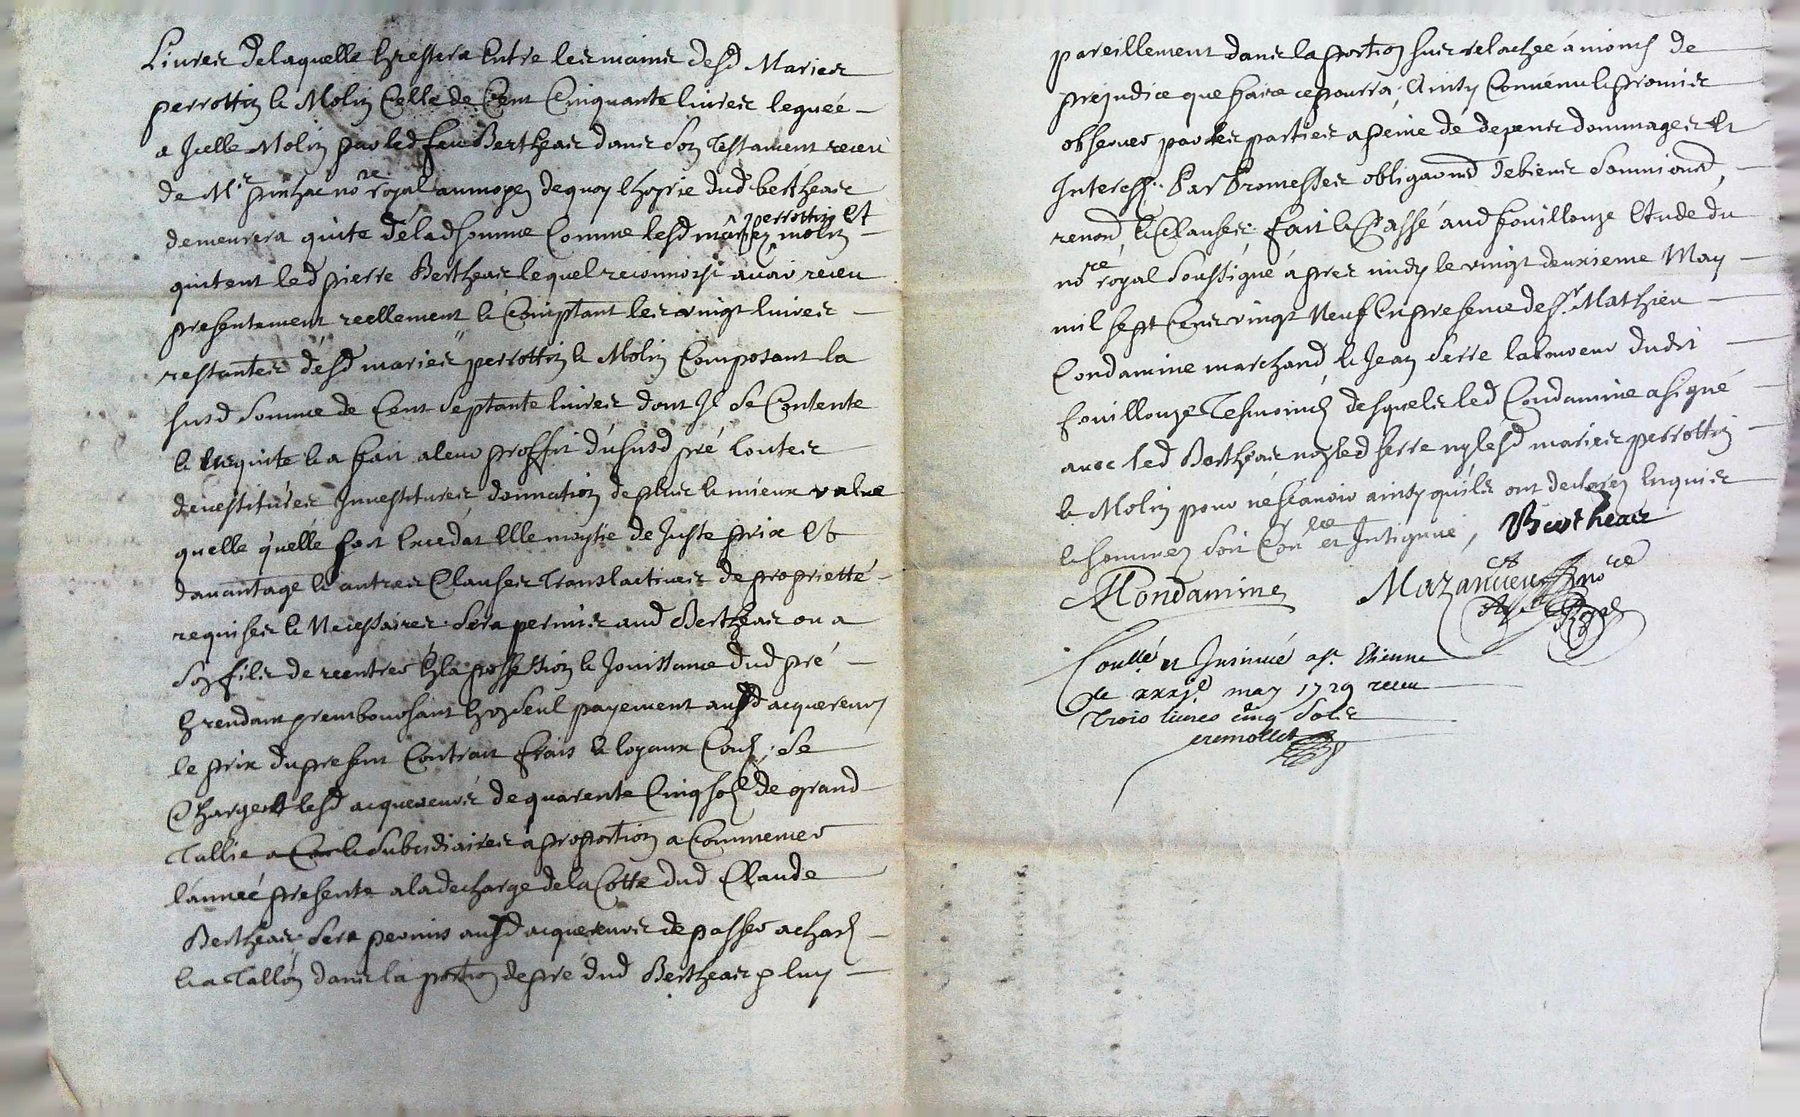 Livres de laquelle h restera entre les mains desd Maries
perrottin & Molin Celle de Cent Cinquante livres leguée
a Jcelle Molin par led feu Bertheas dans son Testament receu
de Mr pinhac nore royal au moyen de quoy lhoyrie dud bertheas
demeurera quite de lad somme Comme lesd mariez perrottin et molin
quitent led pierre Bertheas lequel reconnoist avoir receu
presentement reellement & Comptant les vingt livres
restantes desd maries perrottin & Molin Composant la
susd somme de Cent septante livres dont Jl se Contente
& les quite & a fait a leur proffit du susd pré toutes
devestitures Jnvestitures donnation de plus & mieux value
quelle quelle soit Excedat Elle moytié de Juste prix Et
davantage & autres Clauses Translactives de proprietté
requises & Necessaires sera permis aud Bertheas ou a
son fils de rentrer En la possession & Jouissance dud pré
En rendant & remboursant En un seul payement ausd acquereurs
le prix du present Contrait frais & loyaux Couts, se
Chargent lesd acquereurs de quarente Cinq sols de grand
Tallie & subcidiaires a proportion a Commencer
lannée presente a la decharge de la Cotte dud Claude
Bertheas sera permis ausd acquereurs de passer a chars
& a Tallon dans la portion de pré dud Bertheas & luy
pareillement dans la portion sus relachée a moins de
prejudice que faire ce pourra, Ainsy Convenu & promis
observer par les parties a peine de depens dommages et
Interests Par Promesses obligaons de biens soumions,
renon, & Clauses. fait & Passé aud fouillouze Etude du
nore royal soussigné apres midy le vingt deuxieme May
mil sept Cens vingt Neuf En presence de sr Mathieu
Condamine marchand & Jean serre laboureur dudit
fouillouze Tesmoins desquels led Condamine a signé
avec led Bertheas non led serre ny lesd maries perrottin
& Molin pour ne scavoir ainsy quils ont declarez Enquis
& sommez soit Conlle et Jnsignué, Bertheas
Condamine Mazancieux nore
Conllé et Jnsinué a st Etienne
le xxxje may 1729 receu
Trois livres cinq sols